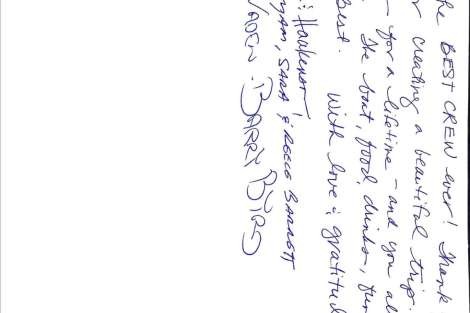 he BEST CREW ever! Thank
r creating a beautiful trip.
- for a lifetime - and you al
. The boat, food, drinks, fun
Best. With love & gratitud
yam, SARA & REECE BARRETT
VADEN BARRY BYRD